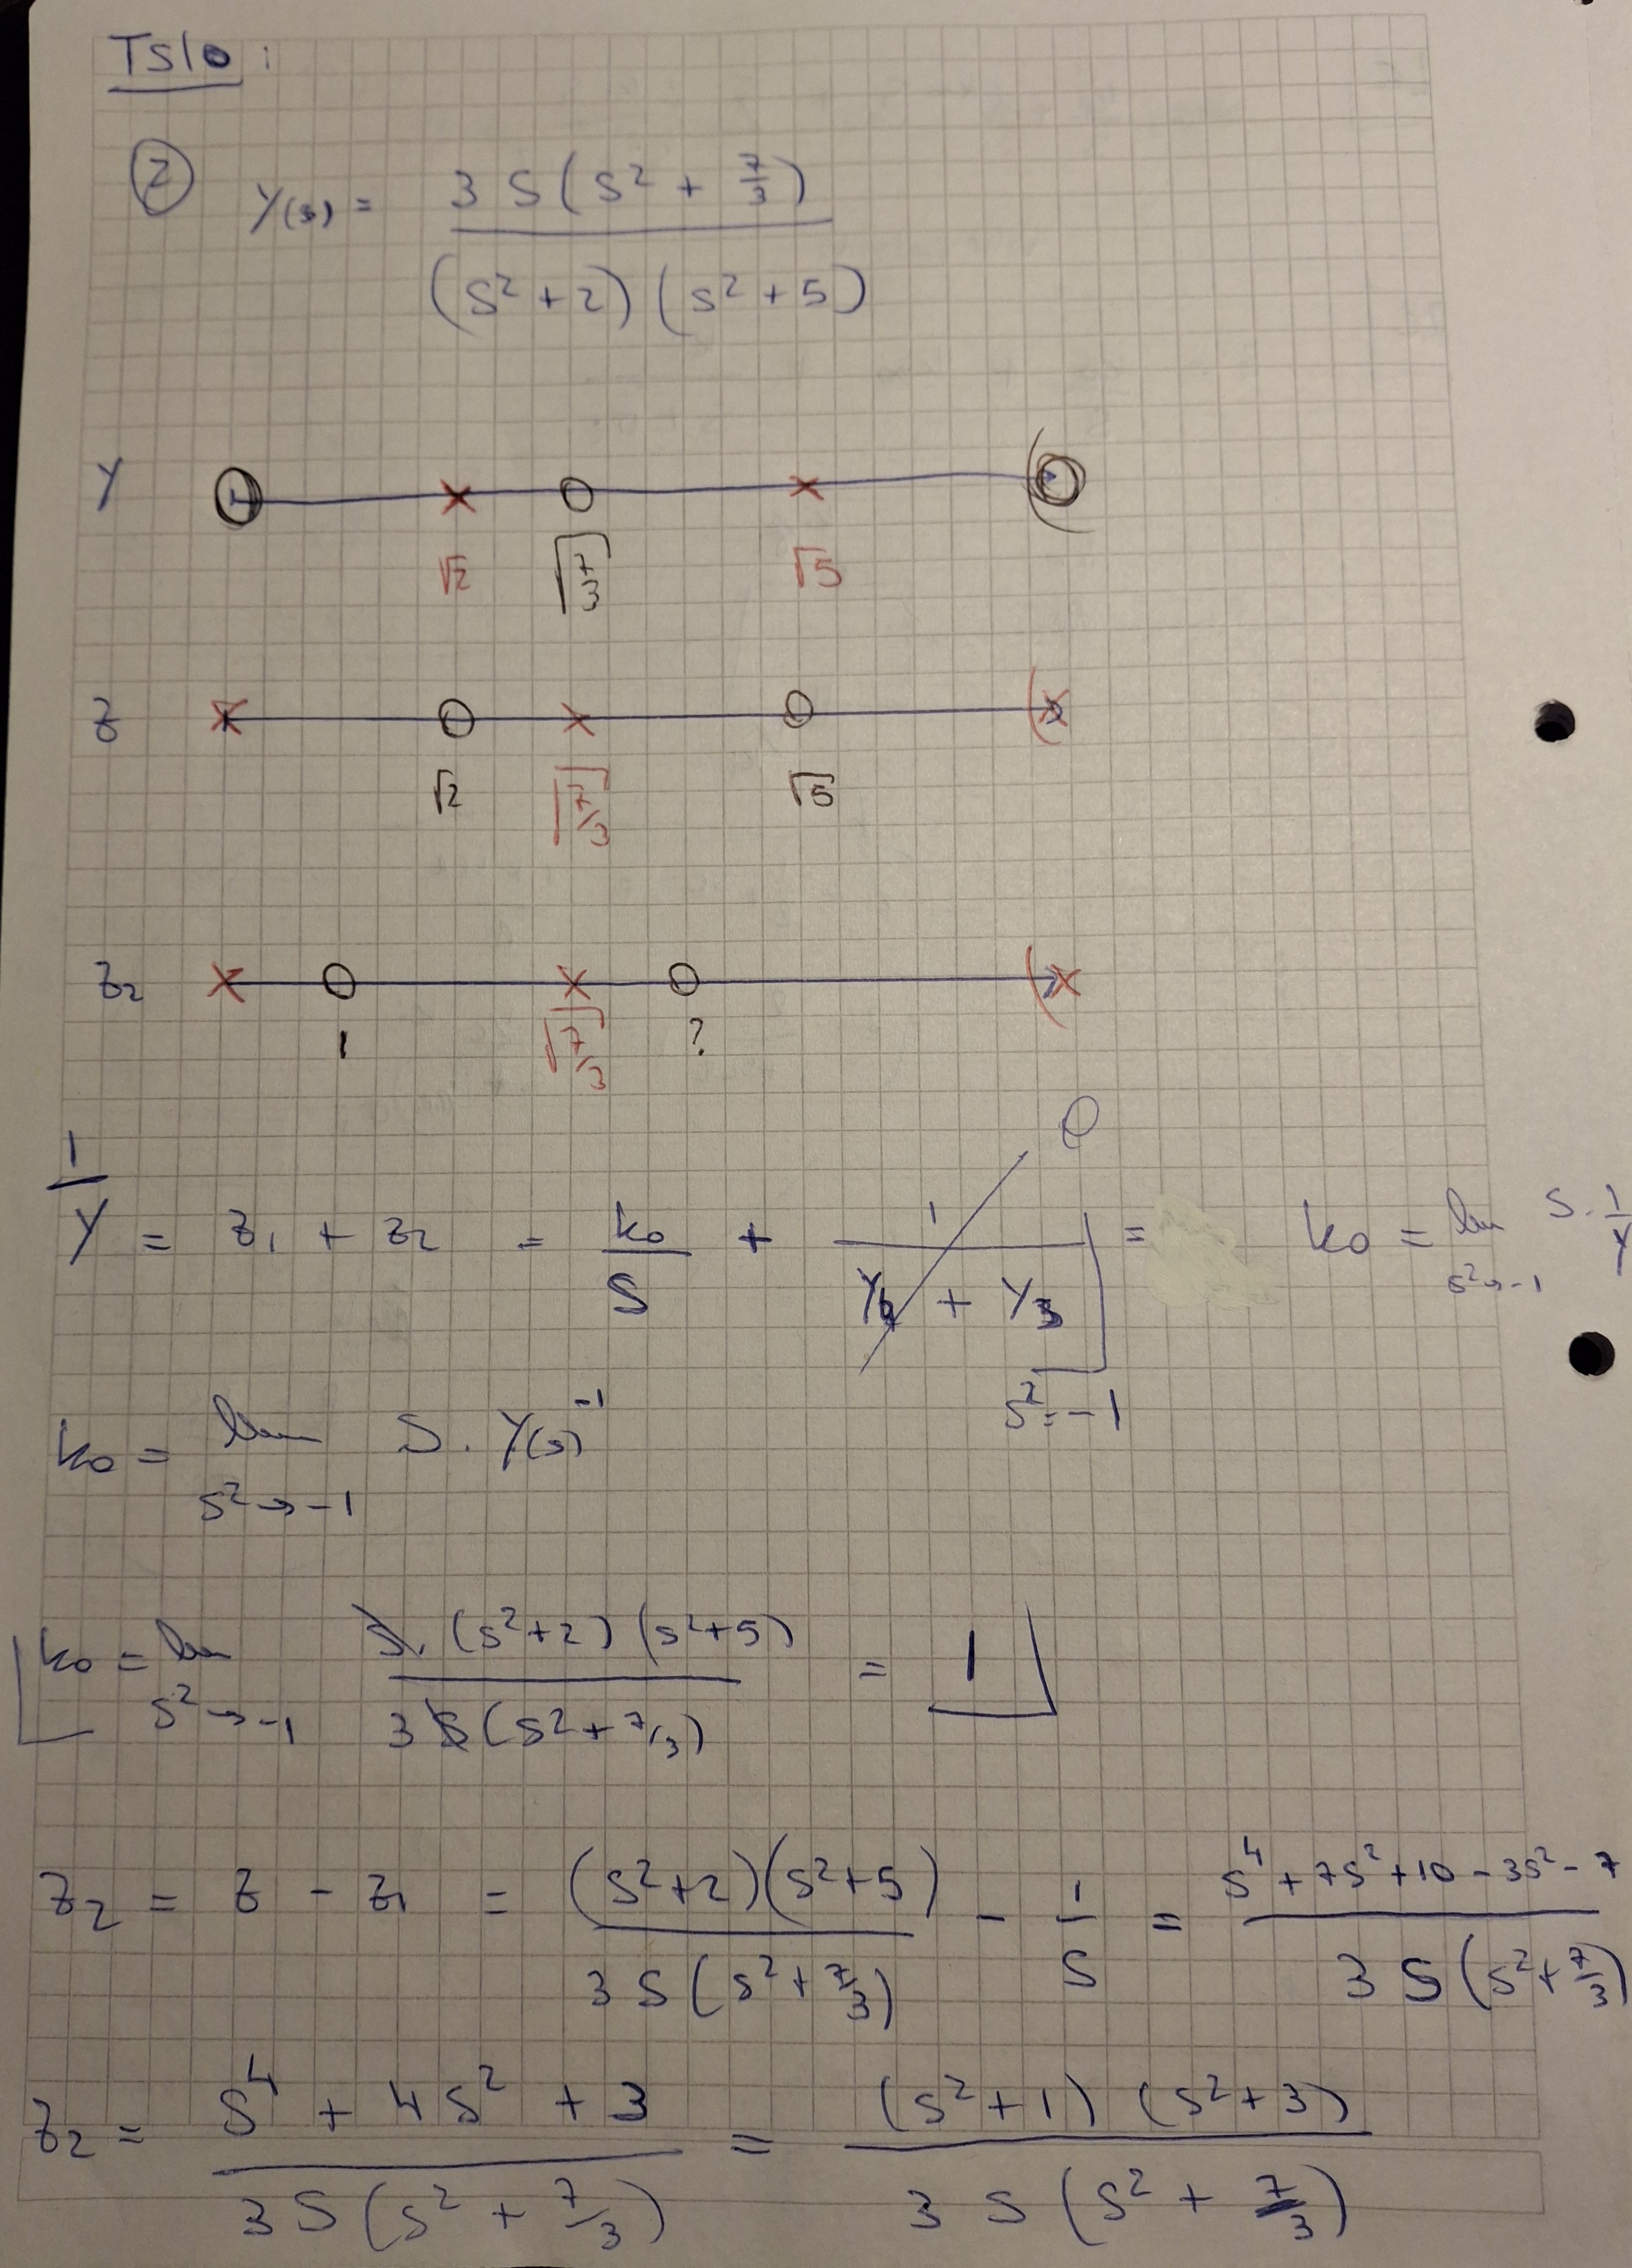 TS10:
② Y(s) = 3 S (S² + 7/3) / (S² + 2) (S² + 5)
Y
√2 √7/3 √5
Z
√2 √7/3 √5
Z₂
1 √7/3 ?
1/Y = Z₁ + Z₂ = k₀/S + 1/(Y₂ + Y₃) ⌋ s² = -1 = k₀ = lim s²→-1 S . 1/Y
0
k₀ = lim s²→-1 S . Y(s)⁻¹
k₀ = lim s²→-1 S. (s²+2) (s²+5) / 3 S (s² + 7/3) = 1
Z₂ = Z - Z₁ = (s²+2)(s²+5) / 3 S (s² + 7/3) - 1/S = s⁴ + 7s² + 10 - 3s² - 7 / 3 S (s² + 7/3)
Z₂ = s⁴ + 4 s² + 3 / 3 S (s² + 7/3) = (s² + 1) (s² + 3) / 3 S (s² + 7/3)